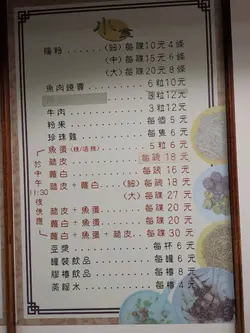 小食
腸粉 (細)每碟10元 4條
(中)每碟15元 6條
(大)每碟20元 8條
魚肉燒賣 6粒10元
3粒12元
牛肉 3粒12元
粉果 每個 5元
珍珠雞 每隻 6元
魚蛋 5粒 6元
豬皮 每碗 18元
蘿白 每碗 18元
豬皮 + 蘿白 (細) 每碗 18元
(大) 每碟 27元
豬皮 + 魚蛋 每碟 20元
蘿白 + 魚蛋 每碟 20元
蘿白 + 魚蛋 + 豬皮 每碟 30元
豆漿 每杯 6元
罐裝飲品 每罐 6元
膠樽飲品 每樽 8元
蒸餾水 每樽 4元
於中午11:30後供應